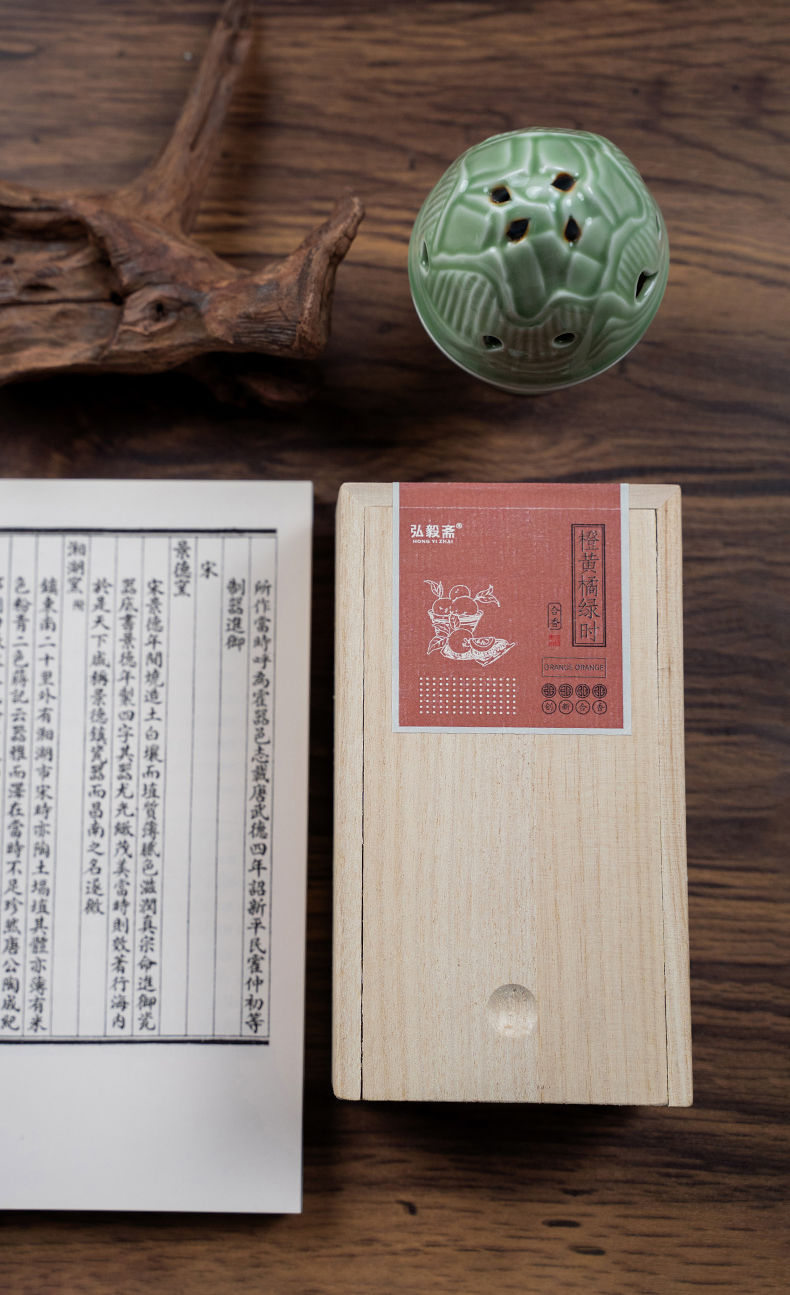 所作當時呼為霍器邑志載唐武德四年詔新平民霍仲初等
制器進御
宋
景德窯
宋景德年間燒造土白壤而埴質薄膩色滋潤真宗命進御瓷
器底書景德年製四字其器尤光緻茂美當時則效著行海內
於是天下咸稱景德鎮瓷器而昌南之名遂微
湘湖窯
鎮東南二十里外有湘湖市宋時亦陶土埴其體亦薄有米
色粉青二色蔣記云器雅而澤在當時不足珍然唐公陶成紀
弘毅斋®
HONG YI ZHAI
橙黄橘绿时
合香
ORANGE ORANGE
创新合香